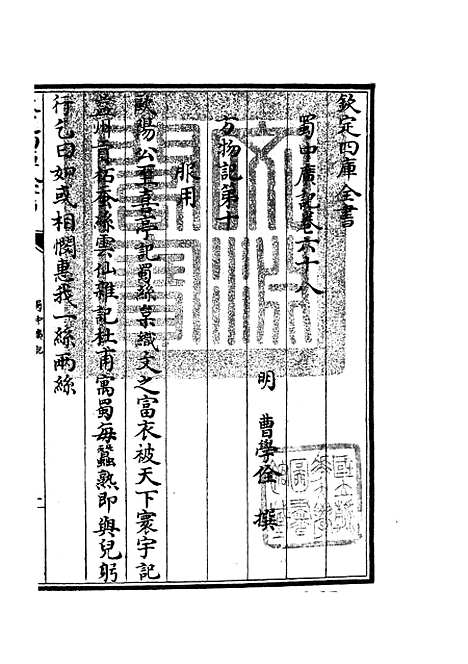 欽定四庫全書
蜀中廣記卷六十八
明 曹學佺 撰
方物記第十
服用
歐陽公 亭記蜀絲枲織文之富衣被天下寰宇記
益州貢柘蚕絲雲仙雜記杜甫寓蜀每蠶熟即與兒躬
行乞曰如或相憫惠我一絲兩絲